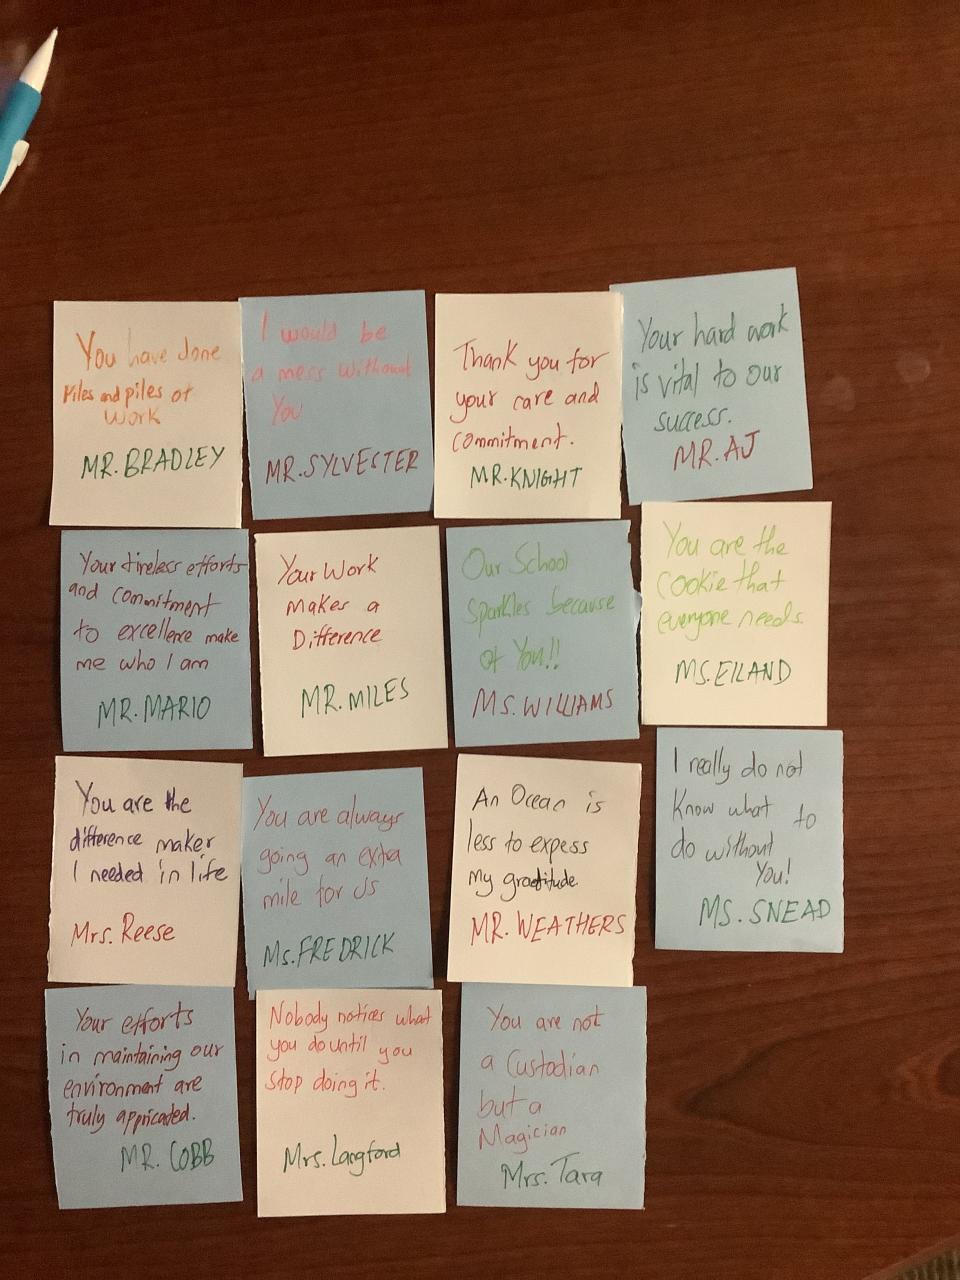 You have done
Piles and piles of
Work
MR. BRADLEY
I would be
a mess without
You
MR. SYLVESTER
Thank you for
your care and
commitment.
MR. KNIGHT
Your hard work
is vital to our
success.
MR. AJ
Your tireless efforts
and commitment
to excellence make
me who I am
MR. MARIO
Your Work
makes a
Difference
MR. MILES
Our School
Sparkles because
of You!!
MS. WILLIAMS
You are the
Cookie that
everyone needs.
MS. EILAND
You are the
difference maker
I needed in life
Mrs. Reese
You are always
going an extra
mile for us
Ms. FREDRICK
An Ocean is
less to expess
my gratitude.
MR. WEATHERS
I really do not
Know what to
do without
You!
MS. SNEAD
Your efforts
in maintaining our
environment are
truly appricated.
MR. COBB
Nobody notices what
you do until you
stop doing it.
Mrs. Langford
You are not
a Custodian
but a
Magician
Mrs. Tara